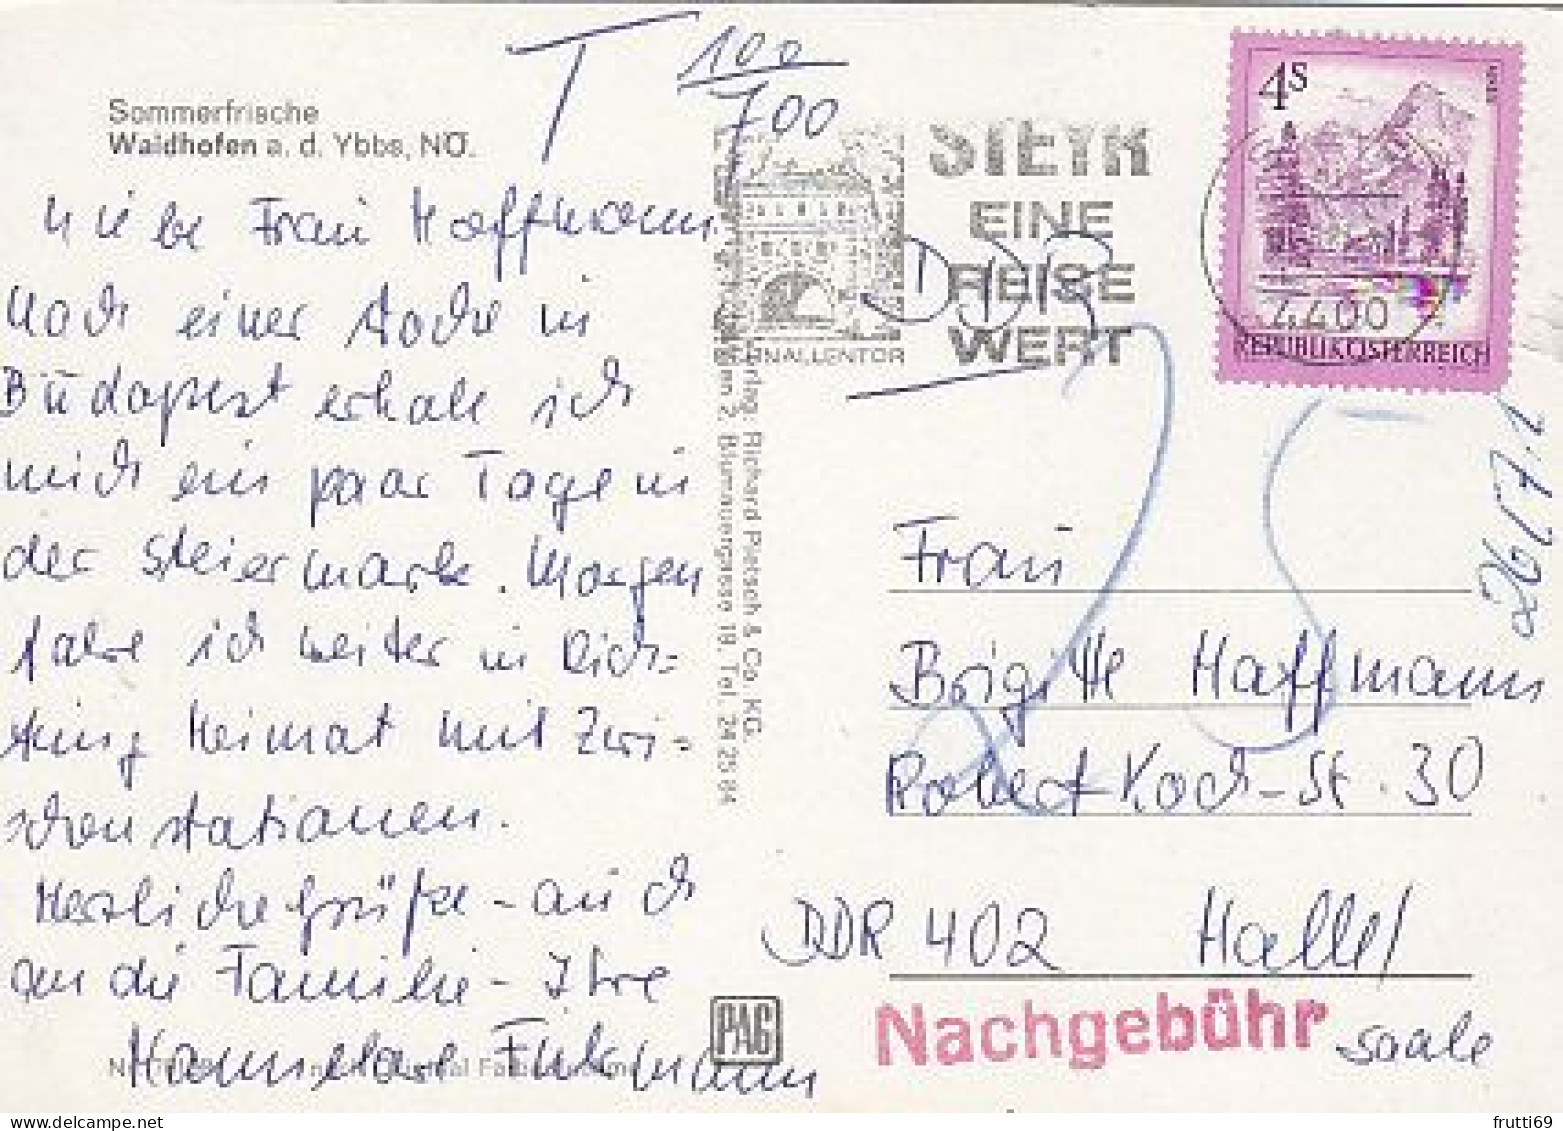 T 100
700
Sommerfrische
Waidhofen a. d. Ybbs, NÖ.
Liebe Frau Hoffmann
Nach einer Woche in
Budapest erhole ich
mich ein paar Tage in
der Steiermark. Morgen
fahre ich weiter in Rich=
tung Heimat mit Zwi=
schenstationen.
Herzliche Grüße - auch
an die Familie - Ihre
Hannelore
SCHNALLENTOR
STEYR
EINE
REISE
WERT
DDR
4S
4400
REPUBLIK ÖSTERREICH
Verlag Richard Pietsch & Co. KG.
Wien 2, Blumauergasse 19, Tel. 24 25 84
25
Frau
Brigitte Hoffmann
Robert Koch-St. 30
DDR 402 Halle/
Saale
Nachgebühr
PAG
frutti69